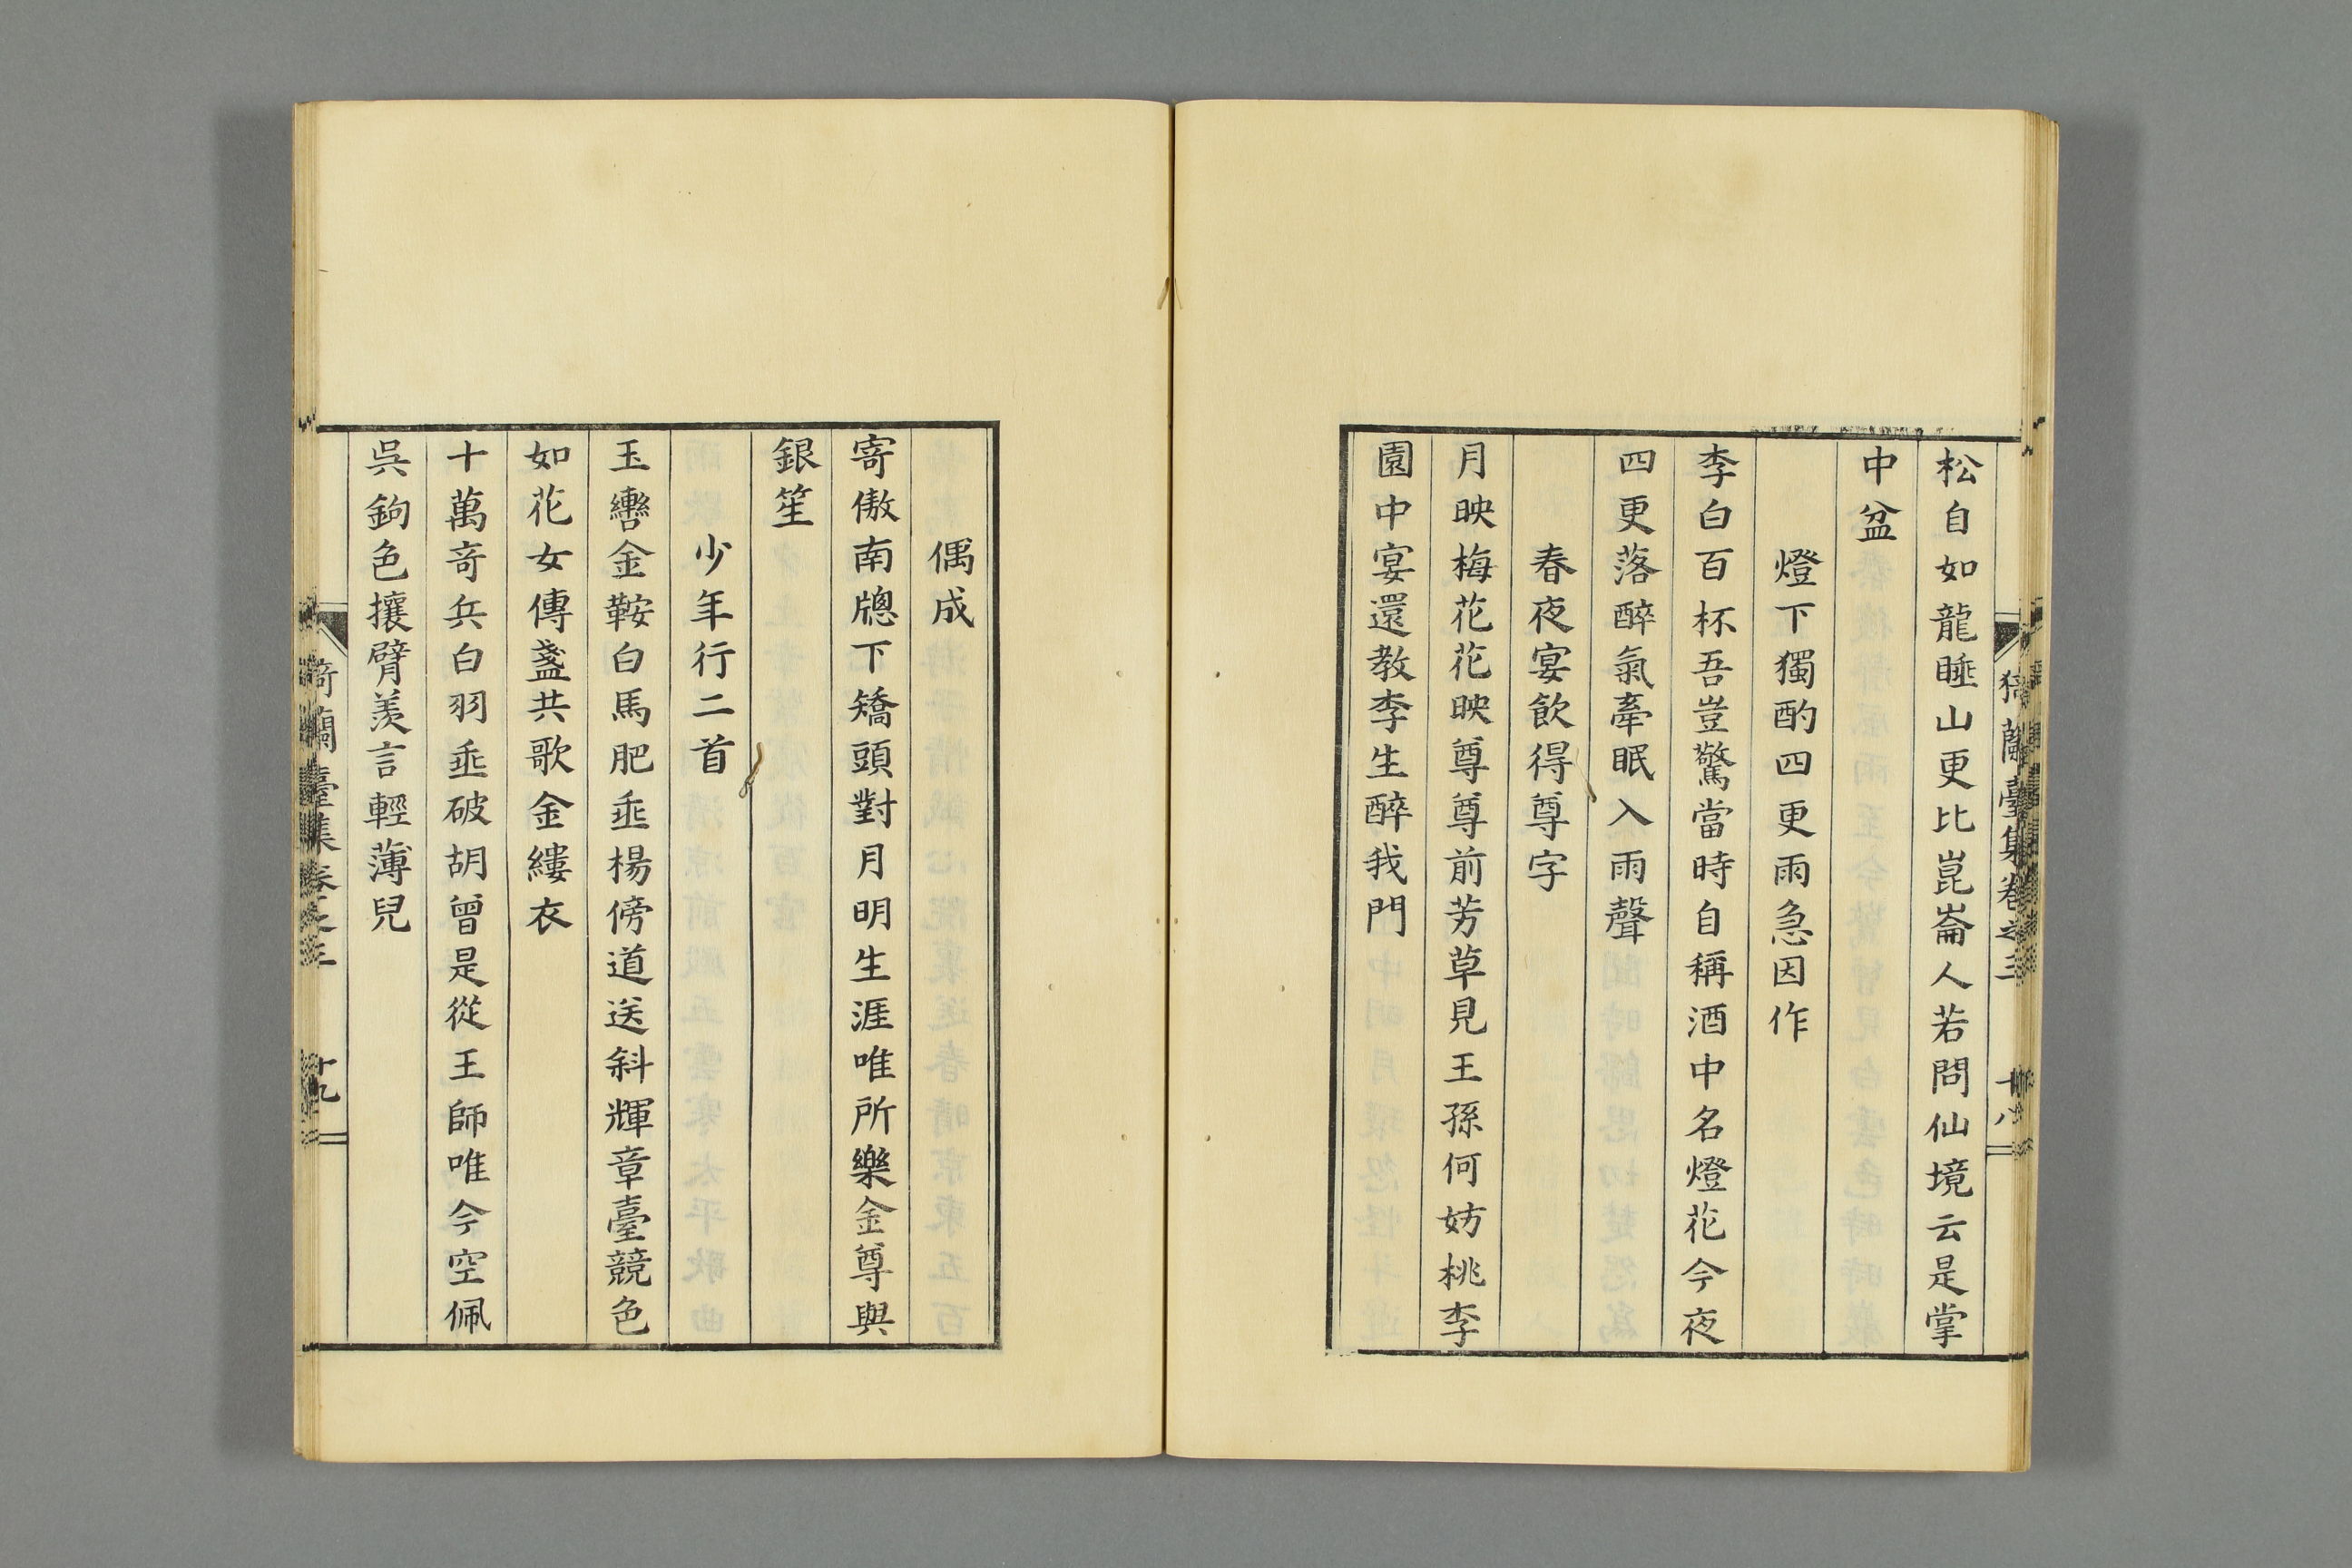 猗蘭臺集卷之三 十八
松自如龍睡山更比崑崙人若問仙境云是掌
中盆
燈下獨酌四更雨急因作
李白百杯吾豈驚當時自稱酒中名燈花今夜
四更落醉氣牽眠入雨聲
春夜宴飲得尊字
月映梅花花映尊尊前芳草見王孫何妨桃李
園中宴還教李生醉我門
偶成
寄傲南牕下矯頭對月明生涯唯所樂金尊與
銀笙
少年行二首
玉轡金鞍白馬肥垂楊傍道送斜輝章臺競色
如花女傳盞共歌金縷衣
十萬奇兵白羽垂破胡曾是從王師唯今空佩
吳鉤色攘臂羨言輕薄兒
猗蘭臺集卷之三 十九